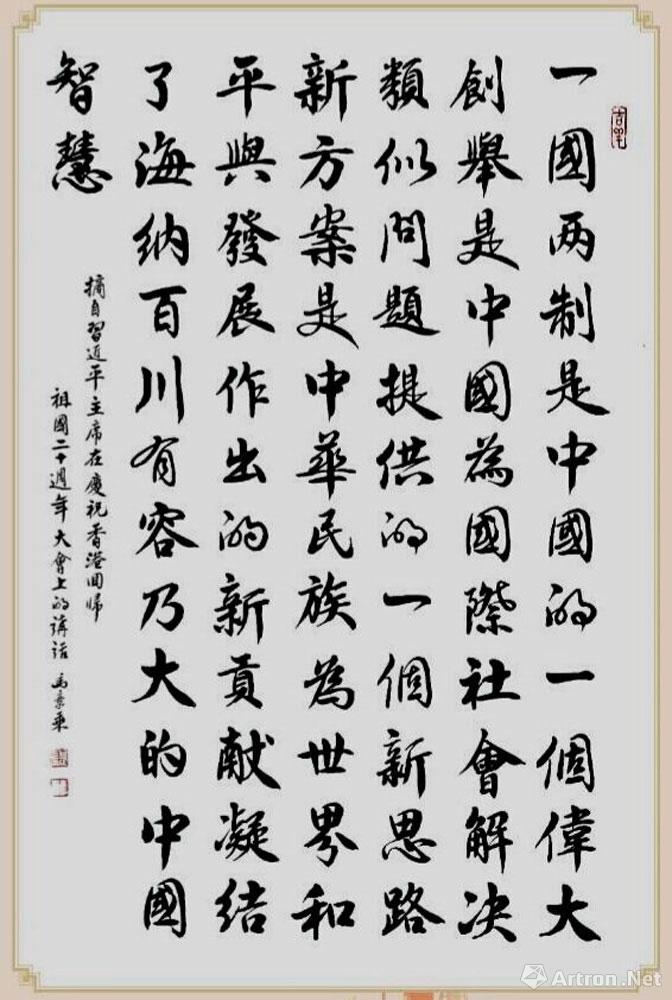 一國两制是中國的一個偉大
創舉是中國為國際社會解决
類似问題提供的一個新思路
新方案是中華民族為世界和
平與發展作出的新貢献凝结
了海纳百川有容乃大的中國
智慧
摘自習近平主席在慶祝香港回歸
祖國二十週年大會上的講話
Artron.Net